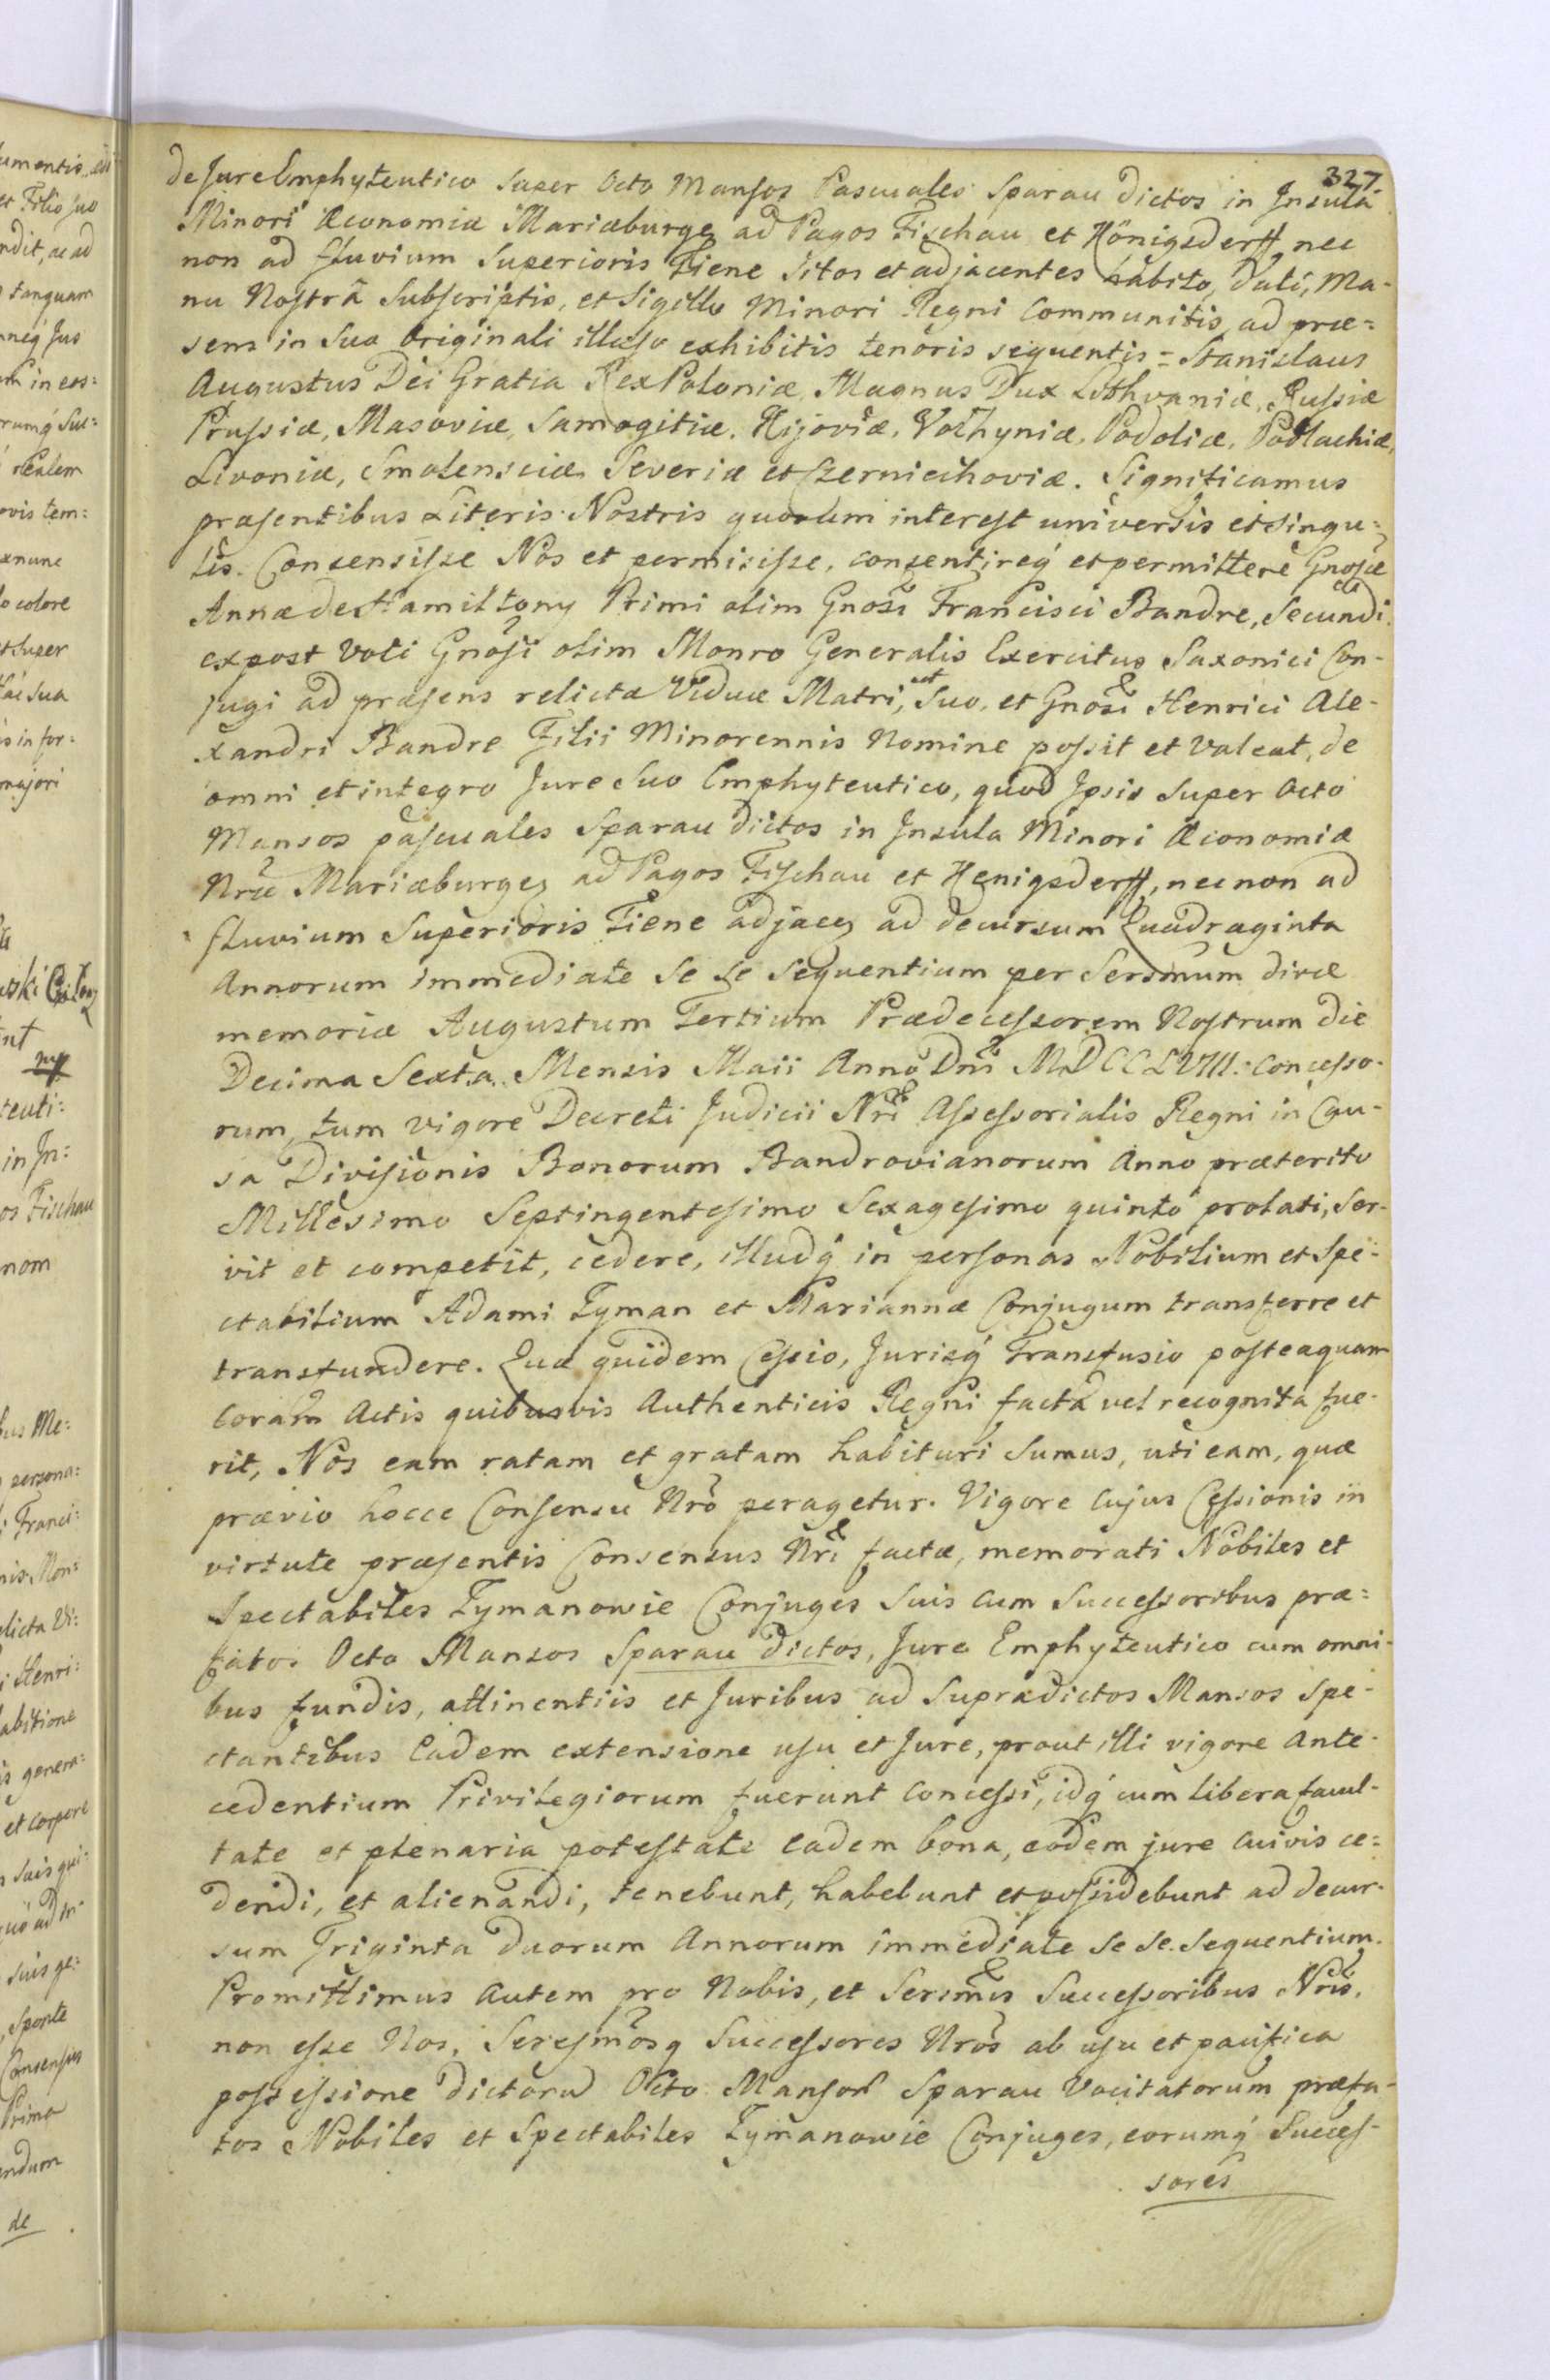 327.
de Jure Emphyteutico super Octo Mansos Pascuales Sparau dictos in Insulâ
Minori Æconomiæ Mariæburgẽ ad Pagos Fischau et Hönigsderff, nec
non ad fluvium Superioris Tiene sitos et adjacentes habito, Dati, Ma-
nu Nostrâ Subscriptis, et Sigillo Minori Regni Communitis, ad præ=
sens in Suo Originali illæso exhibitis tenoris sequentis = Stanislaus
Augustus Dei Gratia Rex Poloniæ, Magnus Dux Lithvaniæ, Russiæ
Prussiæ, Masoviæ, Samogitiæ, Kijoviæ, Volhyniæ, Podoliæ, Podlachiæ,
Livoniæ, Smolensciæ Severiæ et Czerniechoviæ. Significamus
præsentibus Literis Nostris quorum interest universis et singu=
lis. Consensisse Nos et permisisse, consentireq́ et permittere Gnosæ
Annæ de Hamiltony Primi olim Gnosi Francisci Bandre, Secundi
expost Voti Gnosi olim Monro Generalis Exercitus Saxonici Con-
jugi ad præsens relictæ Viduæ Matri, ut Suo, et Gnosi Henrici Ale-
xandri Bandre Filii Minorennis Nomine possit et valeat, de
omni et integro Jure Suo Emphyteutico, quod Ipsis Super Octo
Mansos pascuales Sparau dictos in Insula Minori Æconomiæ
Nræ Mariæburgẽ ad Pagos Fischau et Henigsderff, nec non ad
fluvium Superioris Tiene adjacẽ ad decursum Quadraginta
Annorum immediate se se sequentium per Sersmum divæ
memoriæ Augustum Tertium Prædecessorem Nostrum die
Decima Sexta Mensis Maii Anno Dni MDCCLVIII. concesso-
rum, tum vigore Decreti Judicii Nri Assessorialis Regni in Cau-
sa Divisionis Bonorum Bandrovianorum Anno præterito
Millesimo Septingentesimo Sexagesimo quinto prolati, Ser-
vit et competit, cedere, illudq́ in personas Nobilium et Spe-
ctabilium Adami Tyman et Mariannæ Conjugum transferre et
transfundere. Quæ quidem Cessio, Jurisq́ Transfusio posteaquam
Coram Actis quibusvis Authenticis Regni facta vel recognita fue-
rit, Nos eam ratam et gratam habituri sumus, uti eam, quæ
prævio hocce Consensu Nro peragetur. Vigore cujus Cessionis in
virtute præsentis Consensus Nri factæ, memorati Nobiles et
Spectabiles Tymanowie Conjuges Suis cum Successoribus præ=
fatos Octo Mansos Sparau dictos, Jure Emphyteutico cum omni-
bus fundis, attinentiis et Juribus ad Supradictos Mansos Spe-
ctantibus Eadem extensione usu et Jure, prout illi vigore Ante-
cedentium Privilegiorum fuerunt Concessi, idq́ cum libera facul-
tate et plenaria potestate eadem bona, eodem jure cuivis ce=
dendi, et alienandi, tenebunt, habebunt et possidebunt ad decur-
sum Triginta duorum Annorum immediate se se sequentium.
Promittimus Autem pro Nobis, et Sersmis Successoribus Nris,
non esse Nos, Seresmosq Successores Nros ab usu et pacifica
possessione dictorũ Octo Mansorũ Sparau Vocitatorum præfa-
tos Nobiles et Spectabiles Tymanowie Conjuges, eorumq́ Succes-
sores